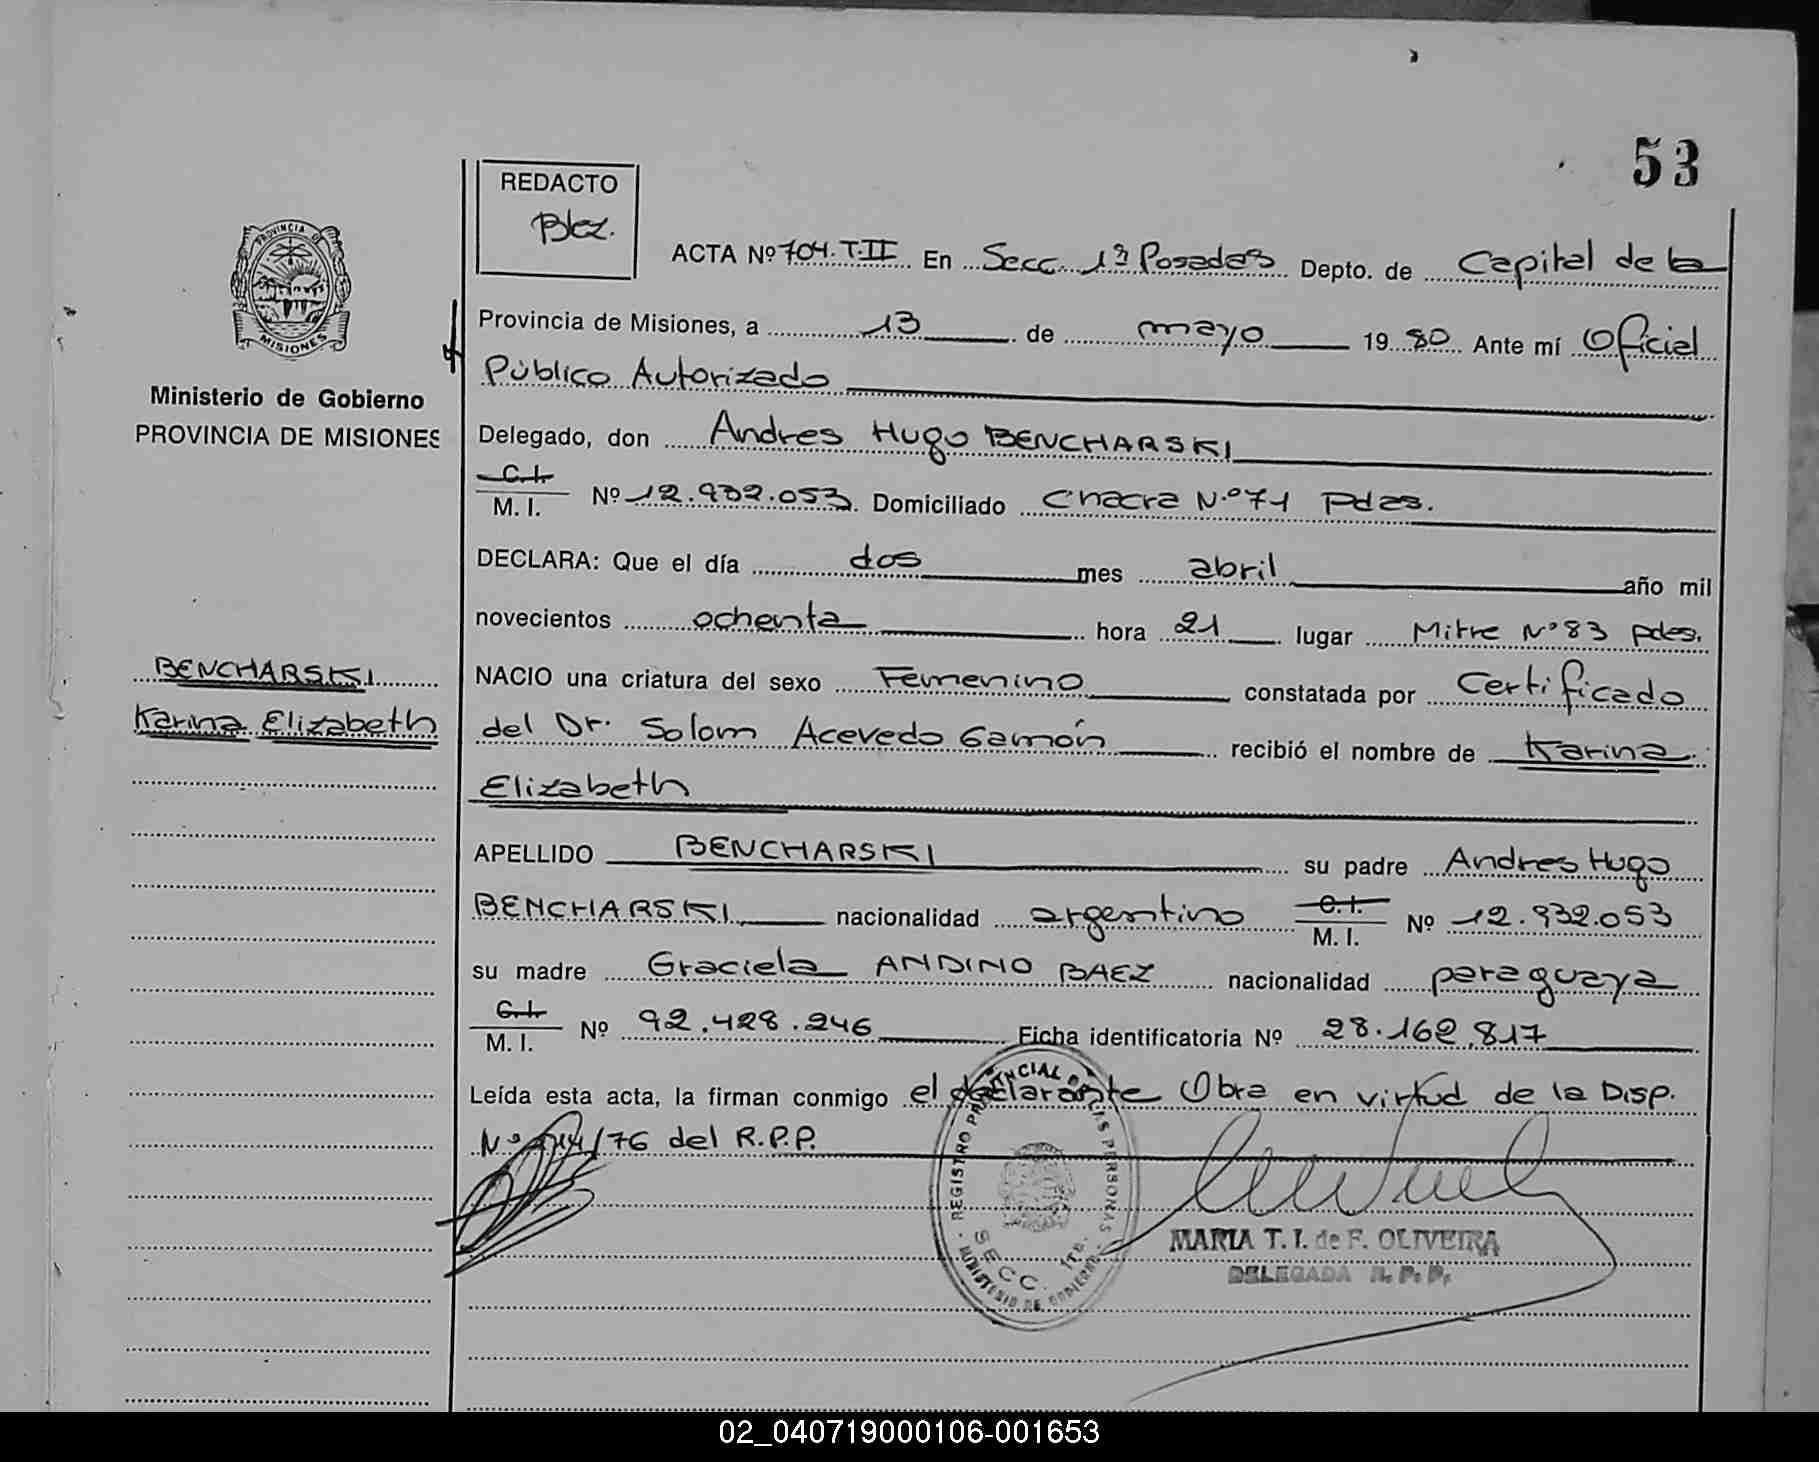 53
REDACTO
Blez.
ACTA Nº 704. T.II En Secc. 1ª Posadas Depto. de Capital de la
Provincia de Misiones, a 13 de mayo 19 80 Ante mí Oficial
Público Autorizado
Delegado, don Andres Hugo BENCHARSKI
C.I. M. I. Nº 12.932.053 Domiciliado Chacra N.º 71 Pdas.
DECLARA: Que el día dos mes abril año mil
novecientos ochenta hora 21 lugar Mitre Nº 83 pdas.
NACIO una criatura del sexo Femenino constatada por Certificado
del Dr. Solom Acevedo Gamón recibió el nombre de Karina
Elizabeth
APELLIDO BENCHARSKI su padre Andres Hugo
BENCHARSKI nacionalidad argentino C.I. M. I. Nº 12.932.053
su madre Graciela ANDINO BAEZ nacionalidad paraguaya
C.I. M. I. Nº 92.428.246 Ficha identificatoria Nº 28.162.817
Leída esta acta, la firman conmigo el declarante Obra en virtud de la Disp.
Nº /76 del R.P.P.
PROVINCIA DE
MISIONES
Ministerio de Gobierno
PROVINCIA DE MISIONES
BENCHARSKI
Karina Elizabeth
REGISTRO PROVINCIAL DE LAS PERSONAS
SECC. 1RA.
MINISTERIO DE GOBIERNO
MARIA T. I. de F. OLIVEIRA
DELEGADA R. P. P.
02_040719000106-001653